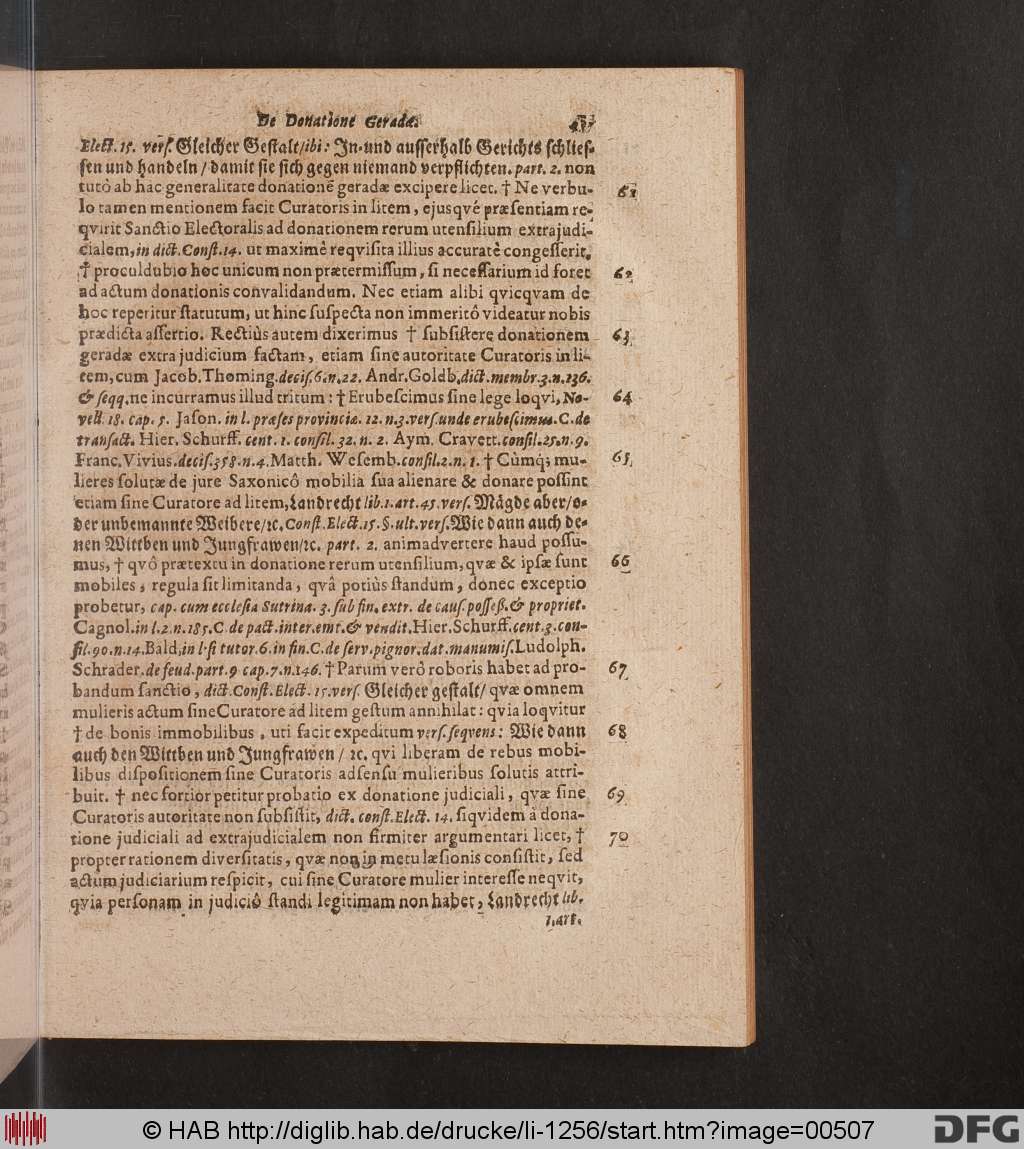 De Donatione Geradæ.
Elect. 15. vers. Gleicher Gestalt/ibi: In-und ausserhalb Gerichts schlies-
sen und handeln/damit sie sich gegen niemand verpflichten. part. 2. non
tutò ab hac generalitate donationē geradæ excipere licet. † Ne verbu- 61
lo tamen mentionem facit Curatoris in litem, ejusqvé præsentiam re-
qvirit Sanctio Electoralis ad donationem rerum utensilium extrajudi-
cialem, in dict. Const. 14. ut maximè reqvisita illius accuratè congesserit,
† proculdubio hoc unicum non prætermissum, si necessarium id foret 62
ad actum donationis convalidandum. Nec etiam alibi qvicqvam de
hoc reperitur statutum, ut hinc suspecta non immeritò videatur nobis
prædicta assertio. Rectiùs autem dixerimus † subsistere donationem 63
geradæ extra judicium factam, etiam sine autoritate Curatoris in li-
tem, cum Jacob. Thoming. decis. 6. n. 22. Andr. Goldb. dict. membr. 3. n. 136.
& seqq. ne incurramus illud tritum: † Erubescimus sine lege loqvi, No- 64
vell. 18. cap. 5. Jason. in l. præses provinciæ. 12. n. 3. vers. unde erubescimus. C. de
transact. Hier. Schurff. cent. 1. consil. 32. n. 2. Aym. Cravett. consil. 25. n. 9.
Franc. Vivius. decis. 358. n. 4. Matth. Wesemb. consil. 2. n. 1. † Cùmq́; mu- 65
lieres solutæ de jure Saxonicô mobilia sua alienare & donare possint
etiam sine Curatore ad litem, Landrecht lib. 1. art. 45. vers. Mägde aber/o-
der unbemannte Weibere/ꝛc. Const. Elect. 15. §. ult. vers. Wie dann auch de-
nen Wittben und Jungfrawen/ꝛc. part. 2. animadvertere haud possu-
mus, † qvô prætextu in donatione rerum utensilium, qvæ & ipsæ sunt 66
mobiles, regula sit limitanda, qvâ potiùs standum, donec exceptio
probetur, cap. cum ecclesia Sutrina. 3. sub fin. extr. de caus. posseß. & propriet.
Cagnol. in l. 2. n. 185. C. de pact. inter. emt. & vendit. Hier. Schurff. cent. 3. con-
sil. 90. n. 14. Bald. in l. si tutor. 6. in fin. C. de serv. pignor. dat. manumis. Ludolph.
Schrader. de feud. part. 9 cap. 7. n. 146. † Parum verô roboris habet ad pro- 67
bandum sanctio, dict. Const. Elect. 15. vers. Gleicher gestalt/ qvæ omnem
mulieris actum sine Curatore ad litem gestum annihilat: qvia loqvitur
† de bonis immobilibus, uti facit expeditum vers. seqvens: Wie dann 68
auch den Wittben und Jungfrawen / ꝛc. qvi liberam de rebus mobi-
libus dispositionem sine Curatoris adsensu mulieribus solutis attri-
buit. † nec fortior petitur probatio ex donatione judiciali, qvæ sine 69
Curatoris autoritate non subsistit, dict. const. Elect. 14. siqvidem à dona-
tione judiciali ad extrajudicialem non firmiter argumentari licet, † 70
propter rationem diversitatis, qvæ non in metu læsionis consistit, sed
actum judiciarium respicit, cui sine Curatore mulier interesse neqvit,
qvia personam in judiciô standi legitimam non habet, Landrecht lib.
1. art.
© HAB http://diglib.hab.de/drucke/li-1256/start.htm?image=00507
DFG